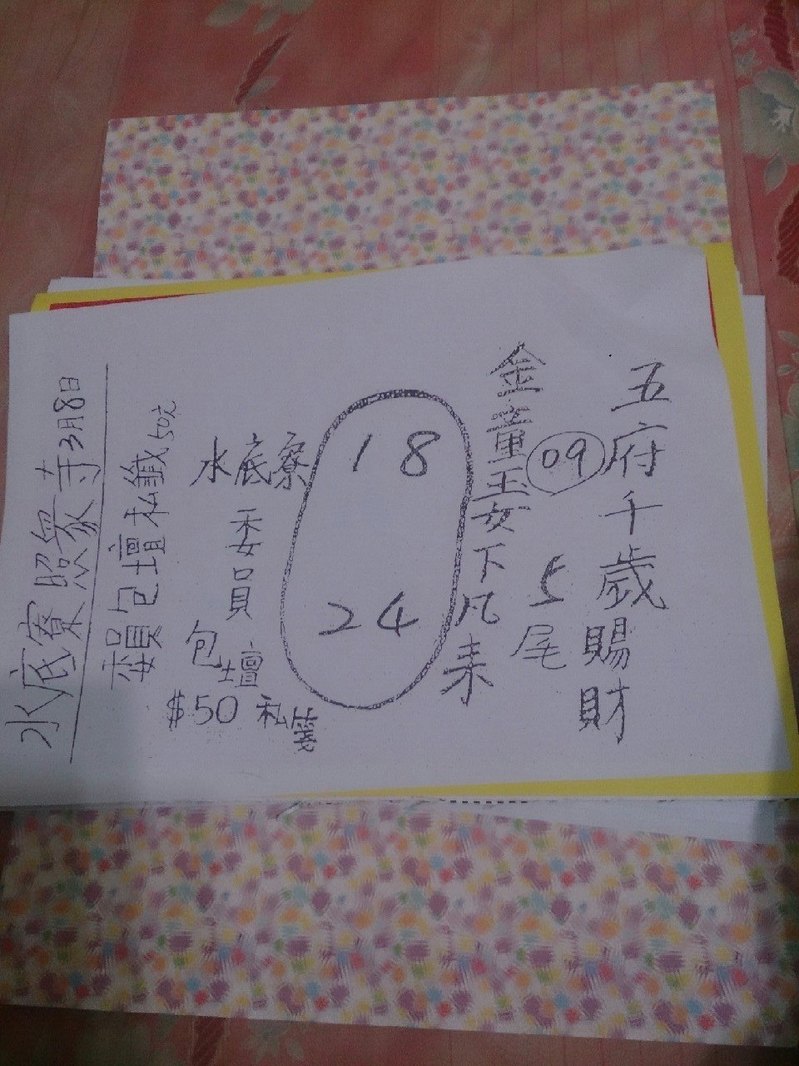 五府千歲賜財
09
5尾
金童玉女下凡來
18
24
水底寮
委員
包壇
$50 私籤
委員包壇私籤50元
水底寮照眾寺3月8日